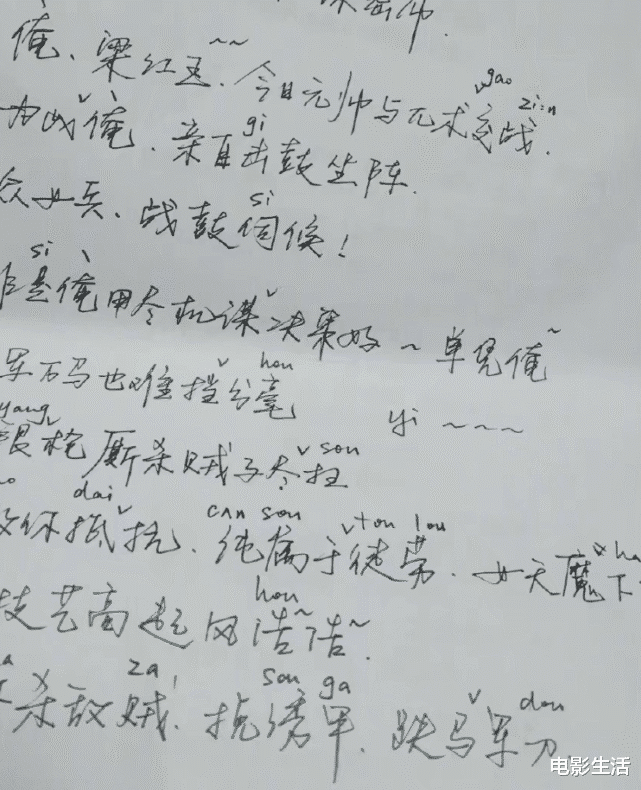 俺、梁红玉~~、今日元帅与兀术交战.
gao zin
为战俺、亲自击鼓坐阵.
gi
众女兵、战鼓伺候！
si
是俺用尽机谋决策好～单凭俺~
si
军万马也难挡分毫
hou
yi～～～
yang
银枪厮杀贼子尽扫
sou
你抵抗、纯属于徒劳、女天魔下
dai can sou tou lou ha
技艺高超风浩~浩~.
hou
杀敌贼、披绣甲、跌马军刀
za sou ga dou
电影生活